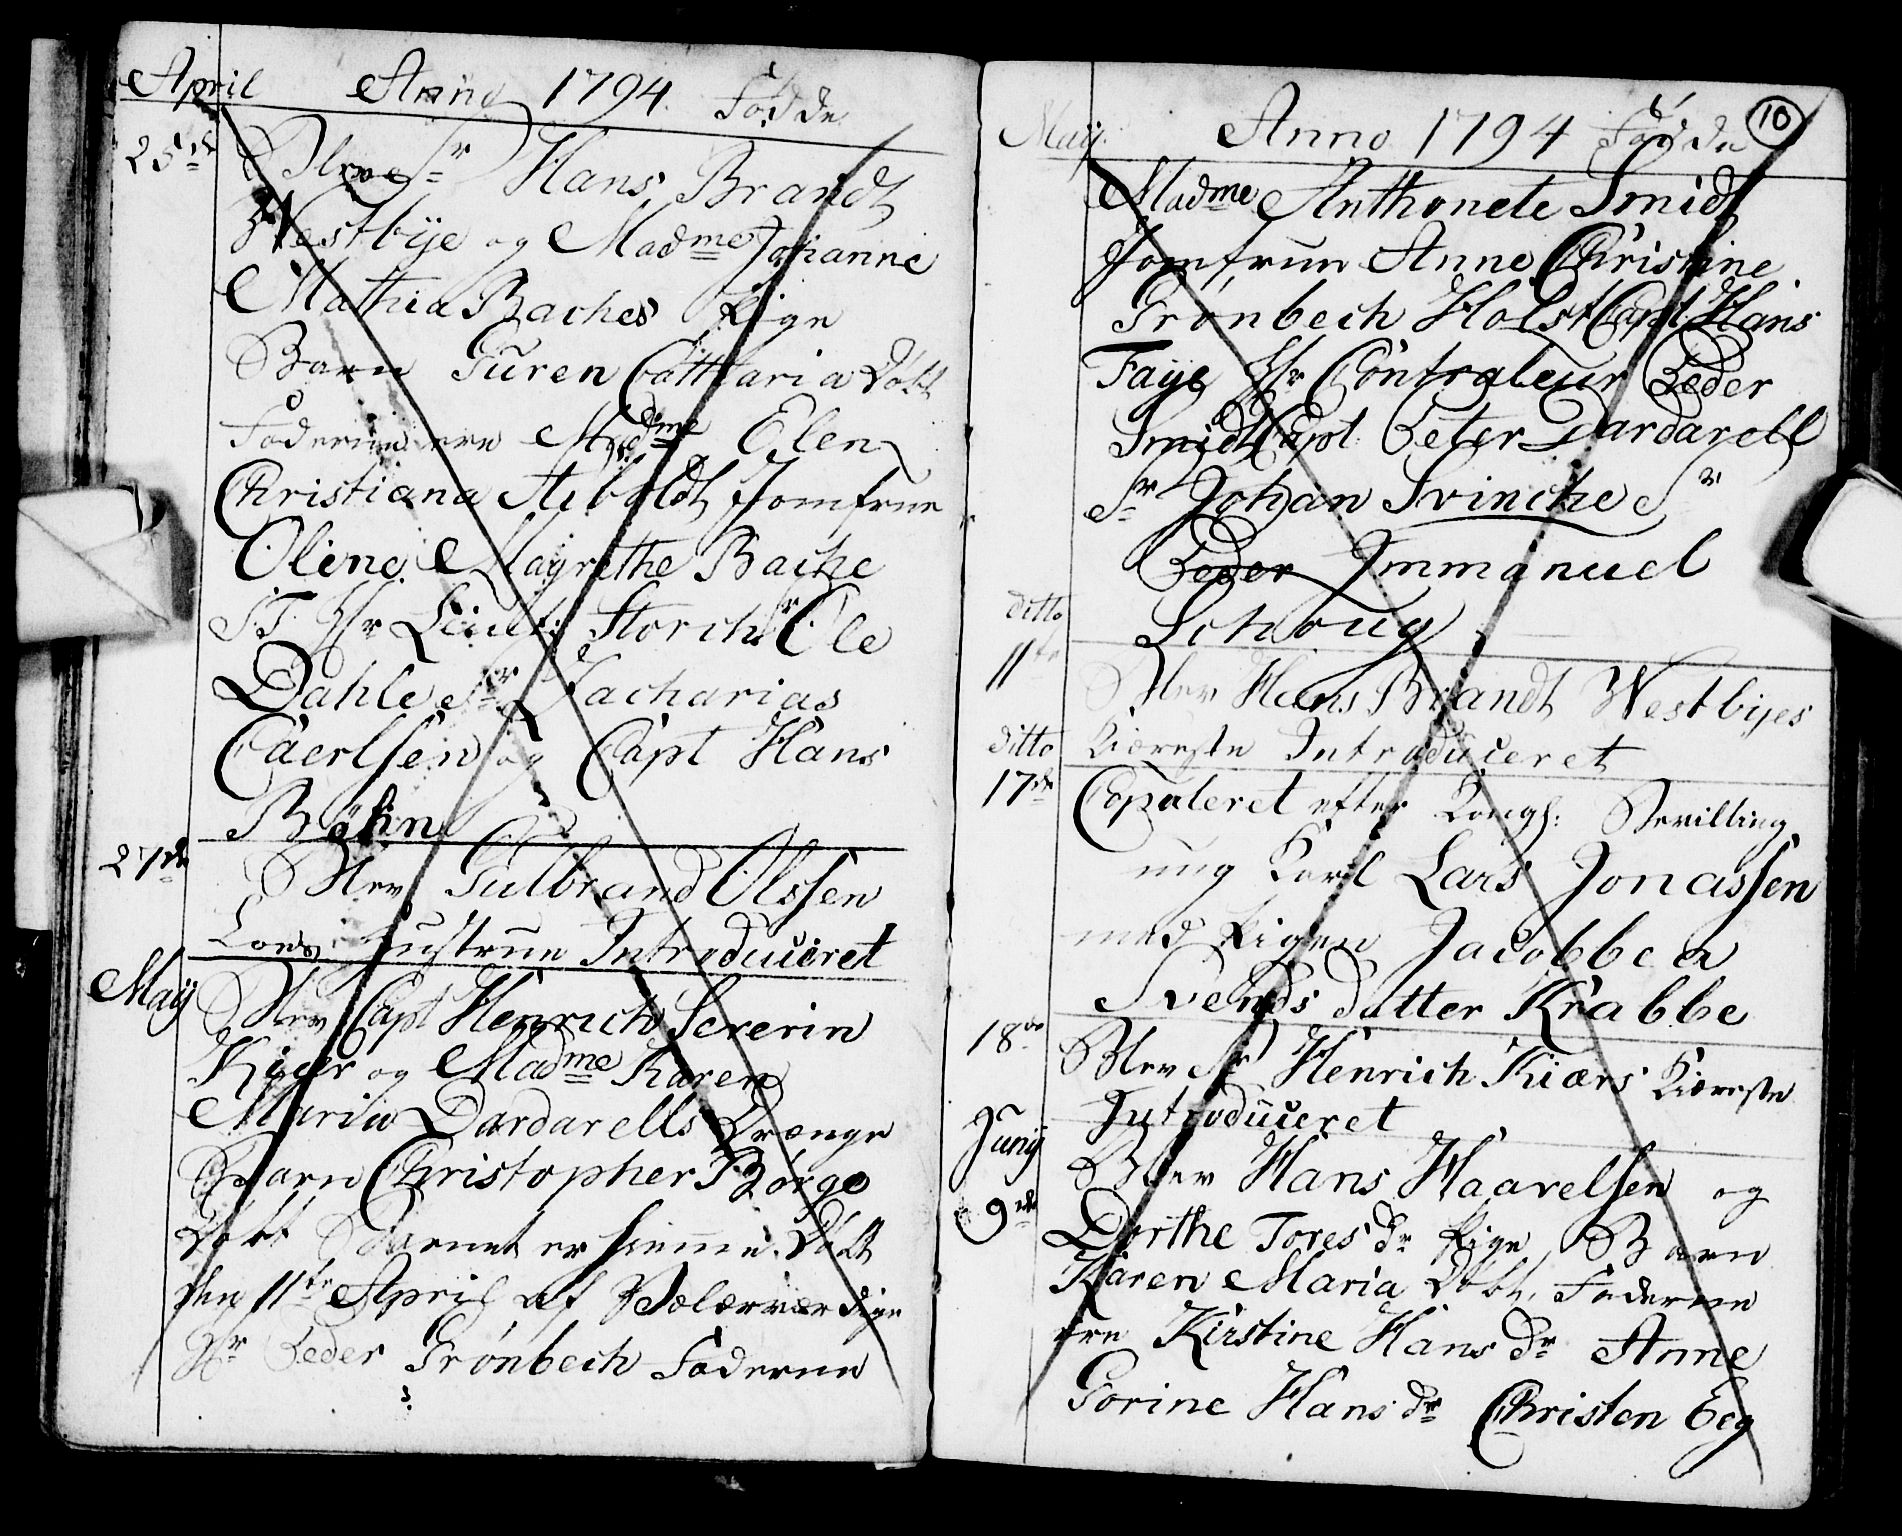 April Anno 1794. Fødde
25de Blev Sr Hans Brandt
Westbye og Madme Johanne
Mathia Baches Pige
Barn Guren Cathharia Døbt
Faderne ere Madme Elen
Christiana Aiboldt Jomfrue
Oline Magrethe Bache
S.T. Hr Lieut: Storch Sr Ole
Dahle Sr Zacharias
Caerlsen og Capt Hans
Bøhn
27de Blev Gulbrand Olssen
Loes Hustrue Introduceret
Maij Blev Capt Henrich Sererin
Kiær og Madme Karen
Maria Dardarells Drænge
Barn Christopher Børge
Døbt Barnet er hiemme Døbt
den 11te April af Velærværdige
Hr Peder Grønbech Faderne
Maij Anno 1794 Fødde 10
Madme Anthonete Smidt
Jomfrue Anne Christine
Grønbech Holst Capt Hans
Faye Hr Controleur Peder
Smidt Capt. Peter Dardarell
Sr Johan Svinche Sr
Peder Immanuel
ditto Schoug
11te Blev Hans Brandt Westbyes
ditto Kiæreste Introduceret
17de Copuleret efter Kongl: Bevilling
ung Karl Lars Jonassen
med Pigen Jacobbea
Svends datter Krabbe
18de Blev Sr Henrich Kiærs Kiæreste
Introduceret
Junij Blev Hans Haarelsen og
9de Dorthe Tores dr Pige Barn
Karen Maria Døbt, Faderne
ere Kirstine Hans dr Anne
Gorine Hans dr Christen Eeg